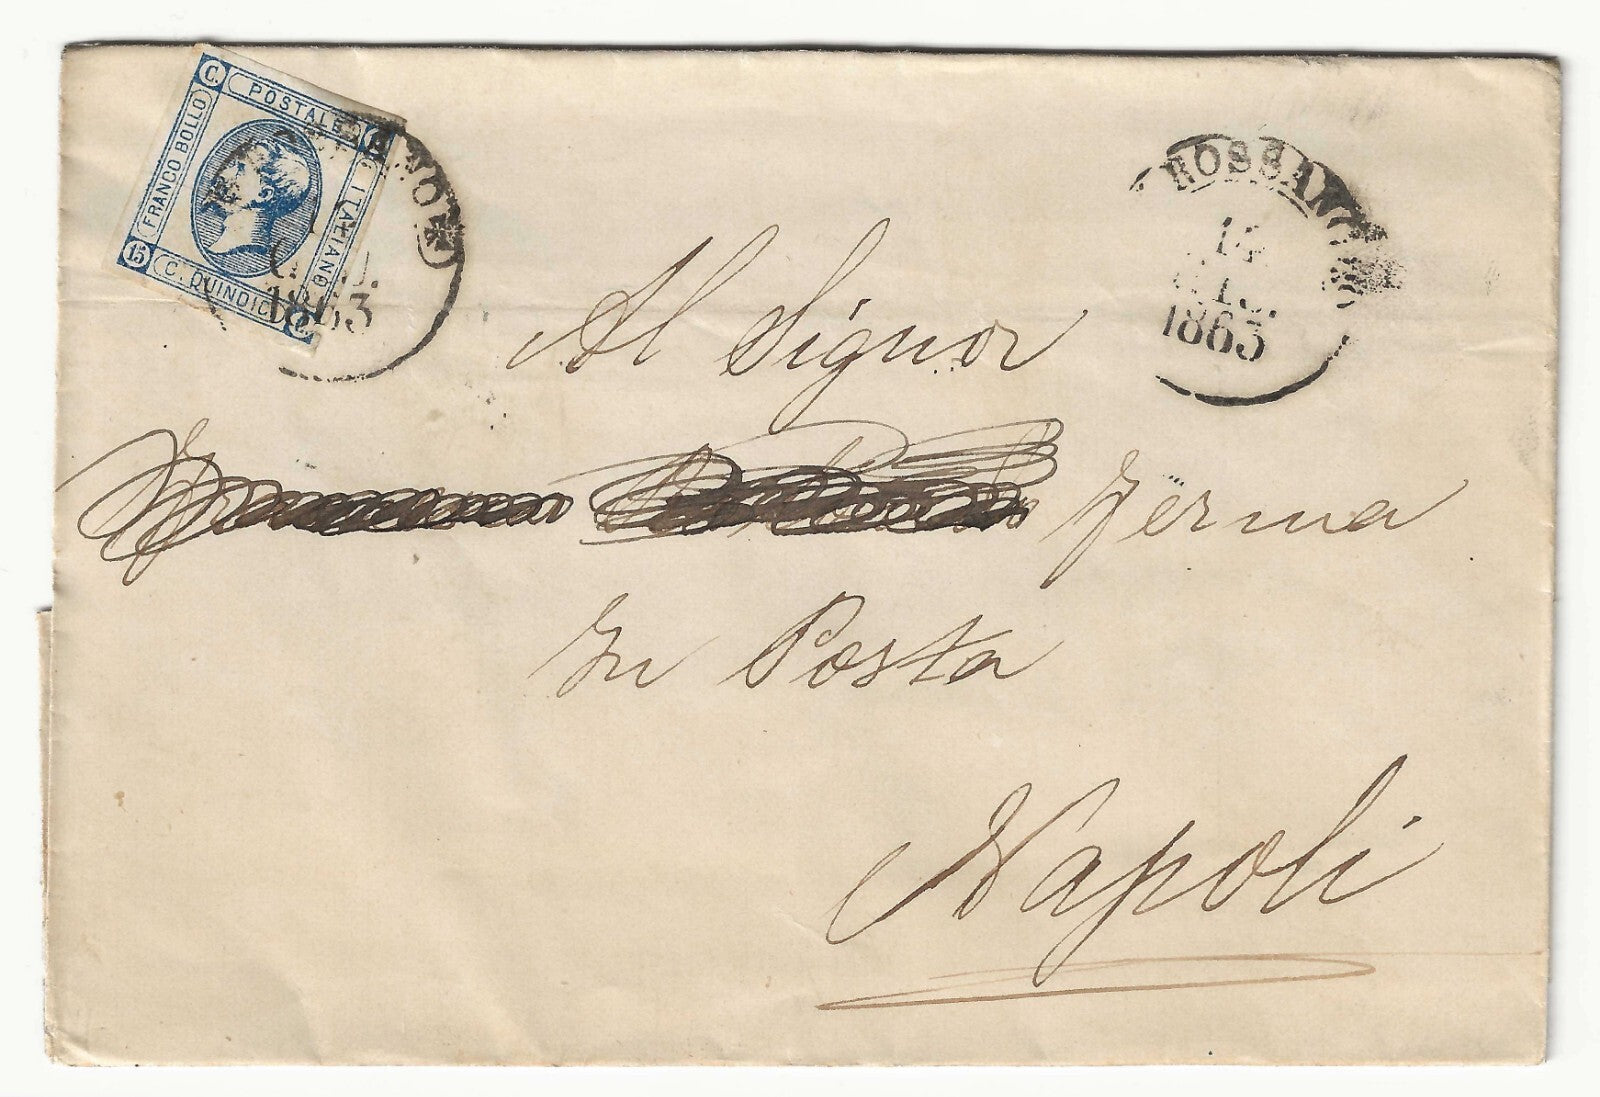 C. POSTALE
FRANCO BOLLO
ITALIANO
15 C. QUINDICI
1863
ROSSANO
14
1863
Al Signor
Ferma
In Posta
Napoli